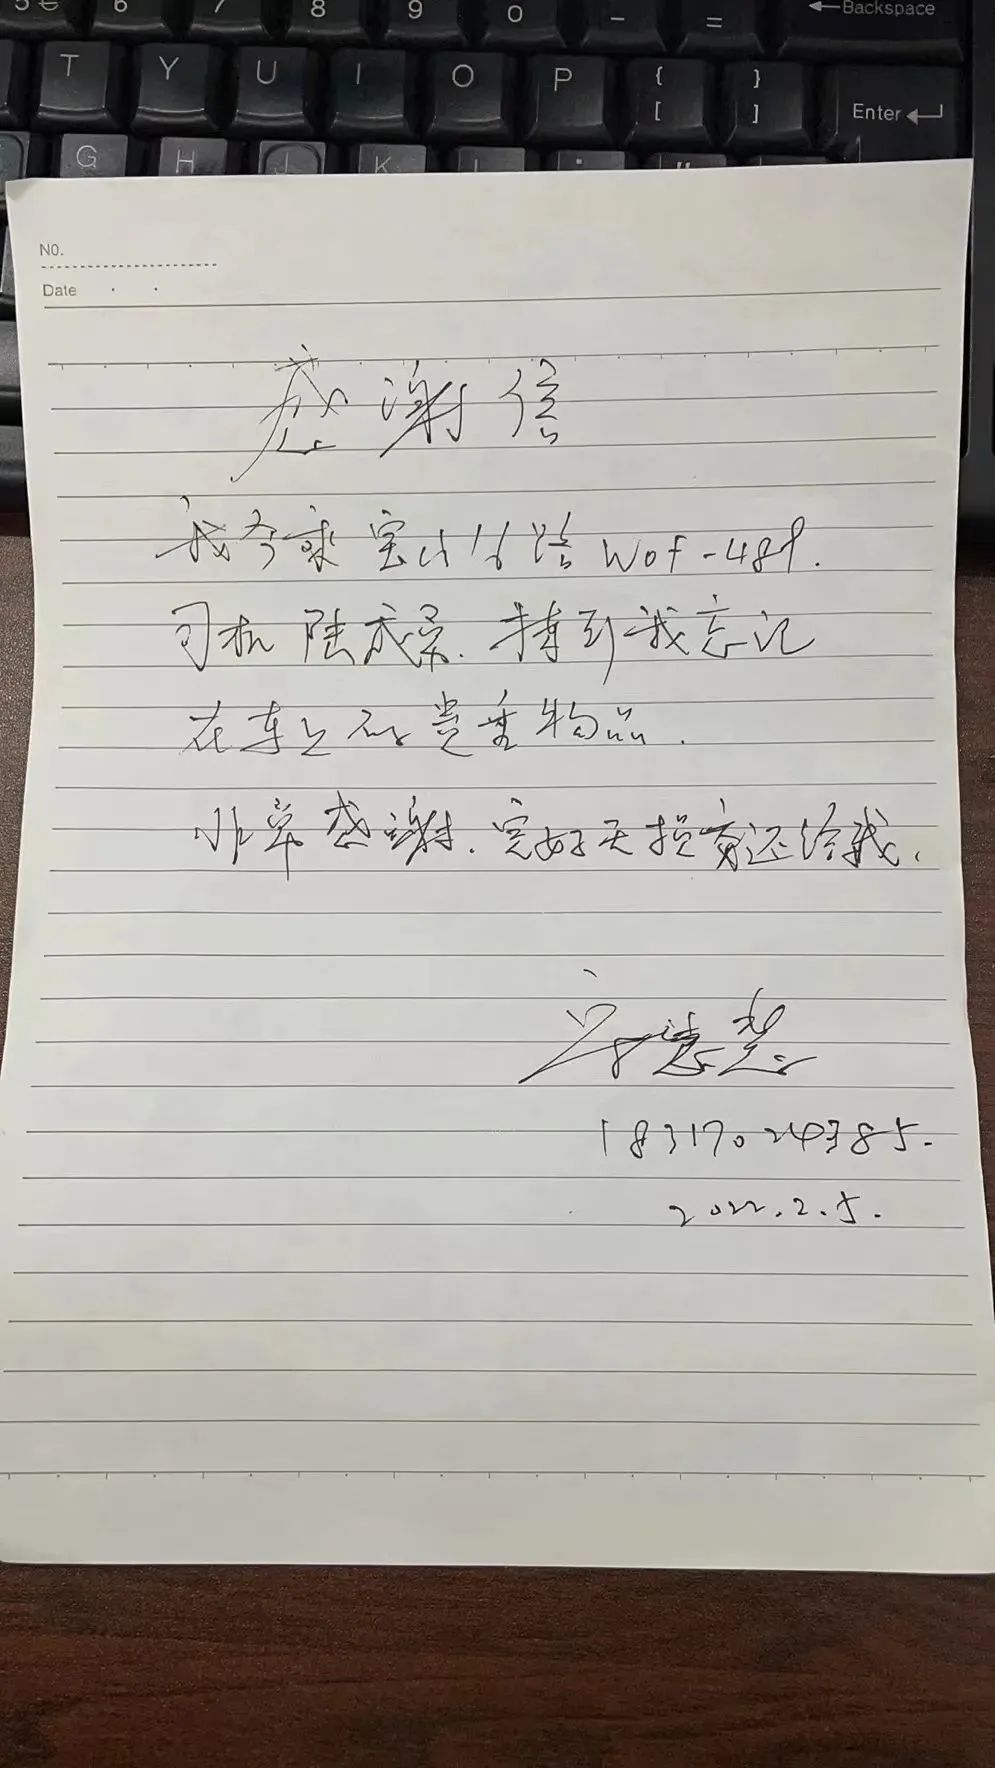 5 € 6 7 8 9 0 - = ←Backspace
T Y U I O P { [ } ] Enter
G H J K L : "
NO.
Date
感谢信
我今 宝山 16 路 W0F-489.
司机 陆成 . 捡到我忘记
在车上的贵重物品.
非常感谢. 完好无损 还给我.
慧
18317024385.
2022.2.5.